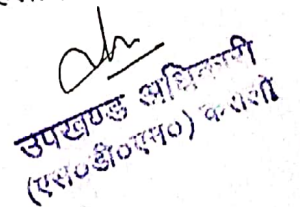 उपखण्ड अधिकारी
(एस०डी०एम०) केराली